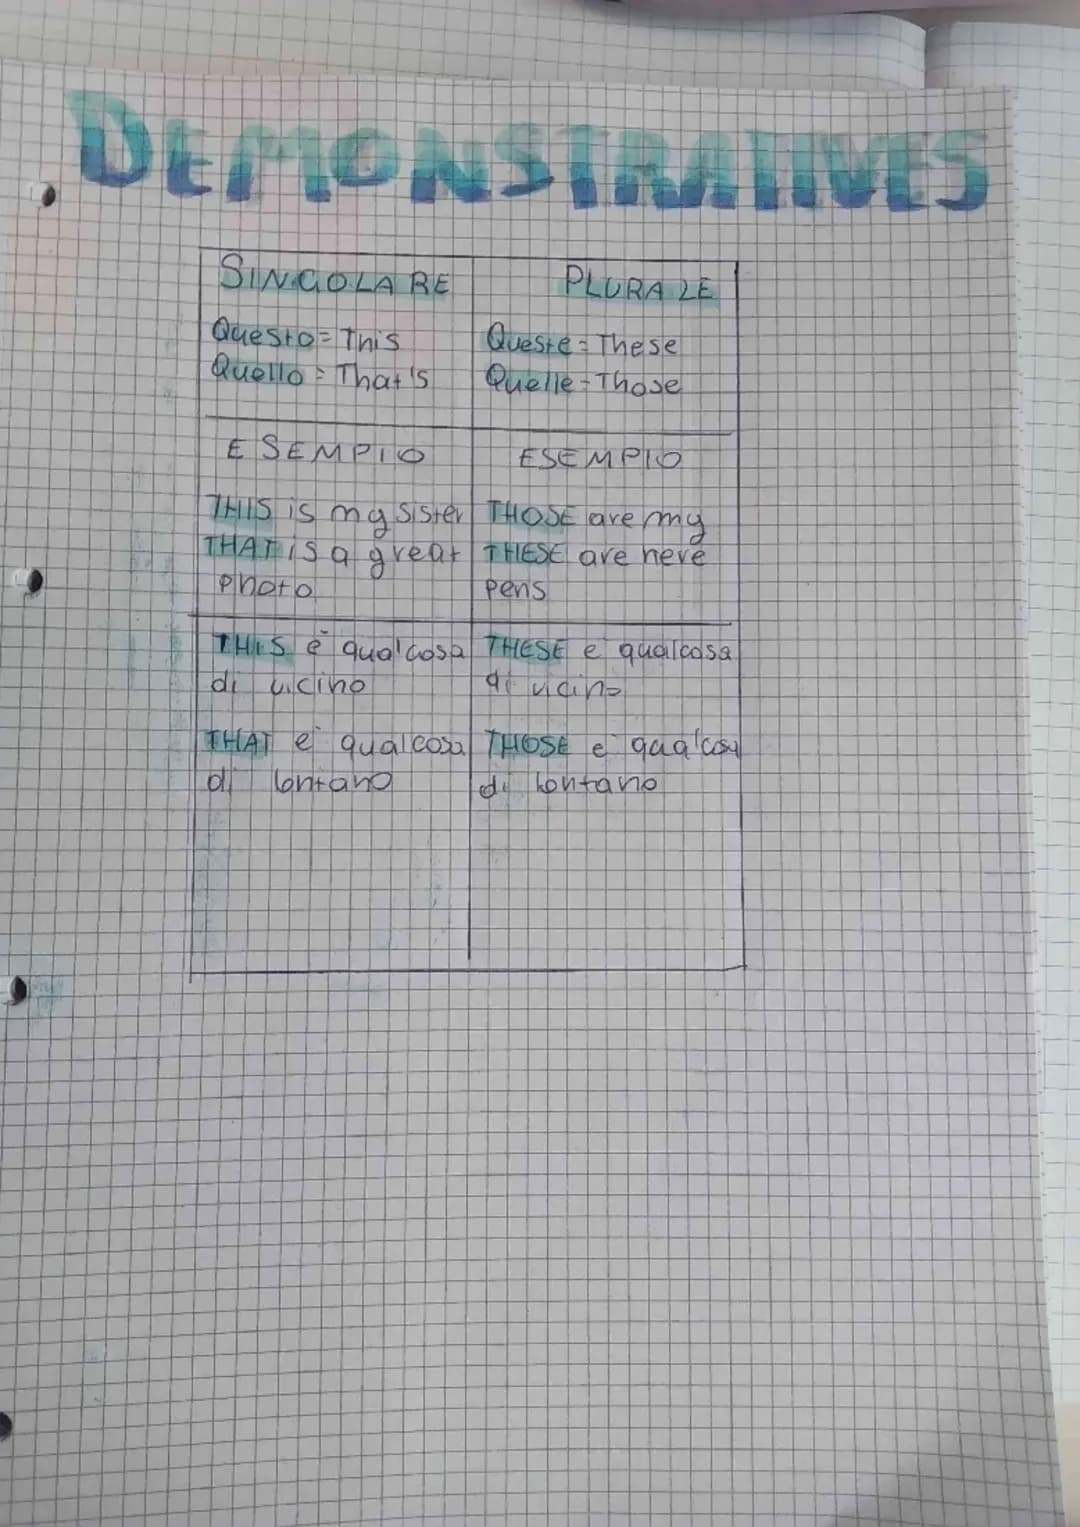 DEMONSTRATIVES
SINGOLARE
Questo = This
Quello = That's
PLURALE
Queste = These
Quelle - Those
ESEMPIO
THIS is my sister
THAT is a great
photo
ESEMPIO
THOSE are my
THESE are here
pens
THIS è qualcosa
di vicino
THAT è qualcosa
di lontano
THESE e qualcosa
di vicino
THOSE e qualcosa
di lontano